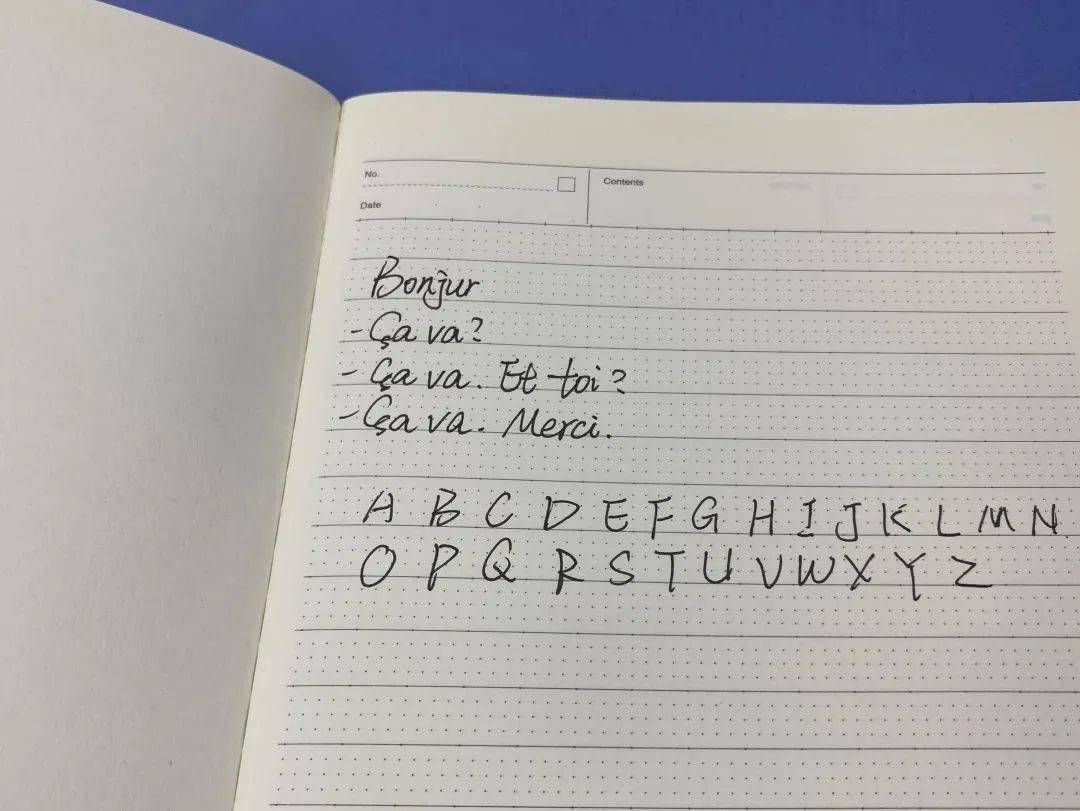 No.
Contents
Date
Bonjur
-Ça va?
-Ça va. Et toi?
-Ça va. Merci.
A B C D E F G H I J K L M N
O P Q R S T U V W X Y Z